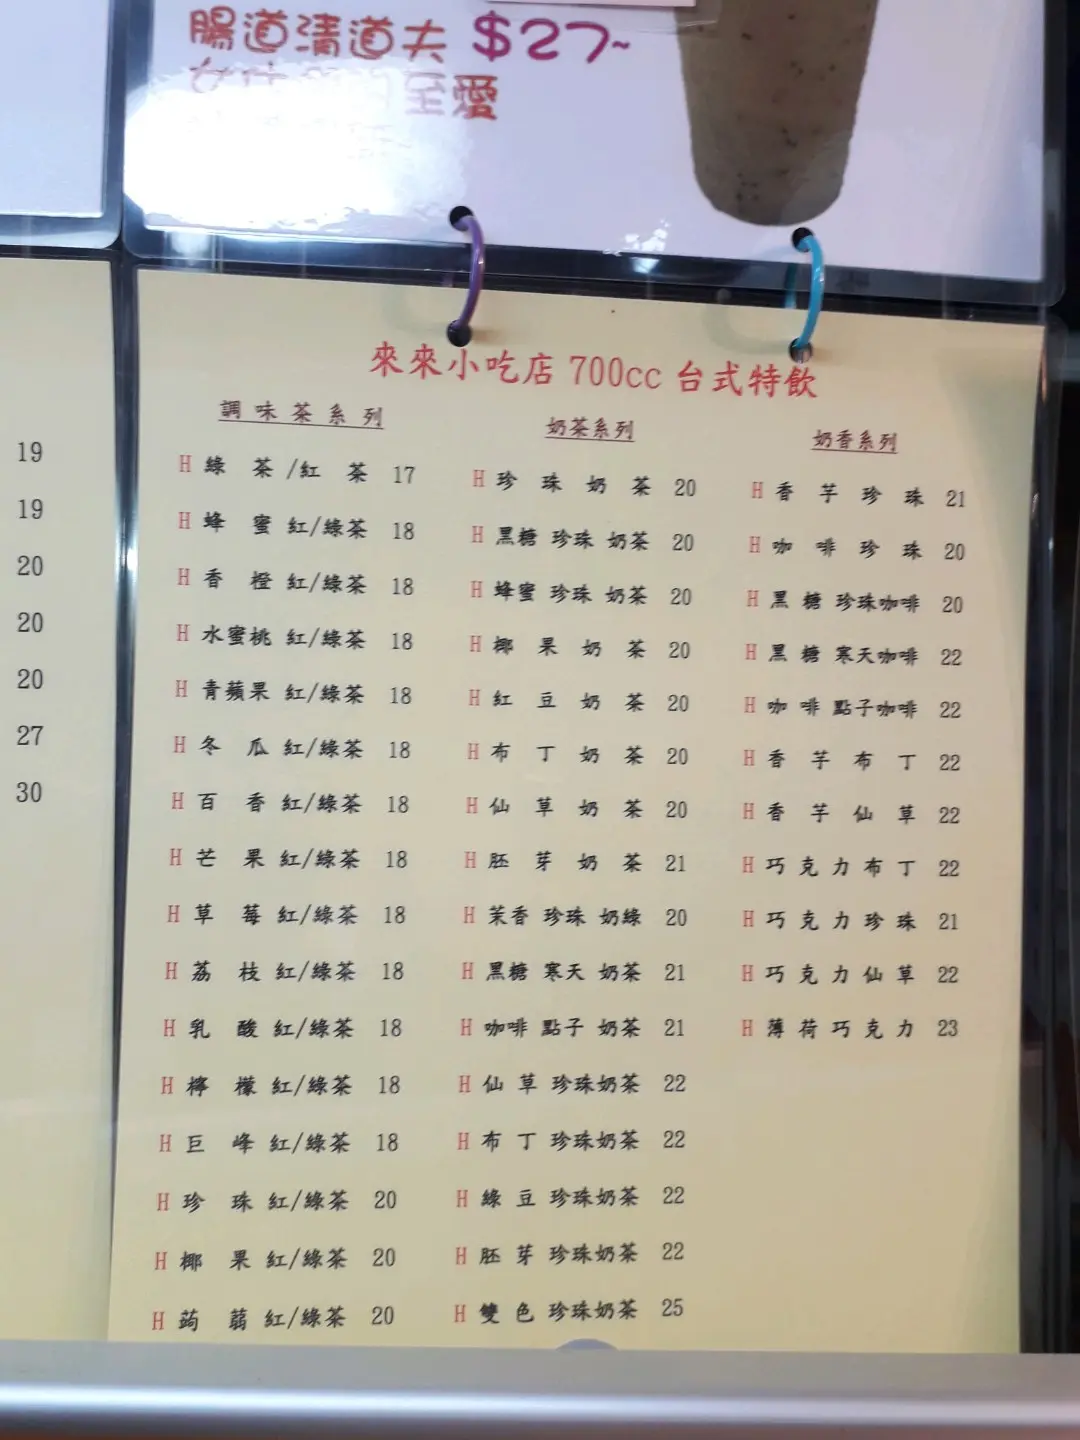 腸道清道夫 $27~
至愛
19
19
20
20
20
27
30
來來小吃店 700cc 台式特飲
調味茶系列
H 綠茶/紅茶 17
H 蜂蜜紅/綠茶 18
H 香橙紅/綠茶 18
H 水蜜桃 紅/綠茶 18
H 青蘋果 紅/綠茶 18
H 冬瓜紅/綠茶 18
H 百香紅/綠茶 18
H 芒果紅/綠茶 18
H 草莓紅/綠茶 18
H 荔枝紅/綠茶 18
H 乳酸紅/綠茶 18
H 檸檬紅/綠茶 18
H 巨峰紅/綠茶 18
H 珍珠紅/綠茶 20
H 椰果紅/綠茶 20
H 蒟蒻紅/綠茶 20
奶茶系列
H 珍珠奶茶 20
H 黑糖 珍珠 奶茶 20
H 蜂蜜 珍珠 奶茶 20
H 椰果奶茶 20
H 紅豆奶茶 20
H 布丁奶茶 20
H 仙草奶茶 20
H 胚芽奶茶 21
H 茉香 珍珠 奶綠 20
H 黑糖 寒天 奶茶 21
H 咖啡 點子 奶茶 21
H 仙草 珍珠奶茶 22
H 布丁 珍珠奶茶 22
H 綠豆 珍珠奶茶 22
H 胚芽 珍珠奶茶 22
H 雙色 珍珠奶茶 25
奶香系列
H 香芋珍珠 21
H 咖啡珍珠 20
H 黑糖 珍珠咖啡 20
H 黑糖 寒天咖啡 22
H 咖啡 點子咖啡 22
H 香芋布丁 22
H 香芋仙草 22
H 巧克力布丁 22
H 巧克力珍珠 21
H 巧克力仙草 22
H 薄荷巧克力 23